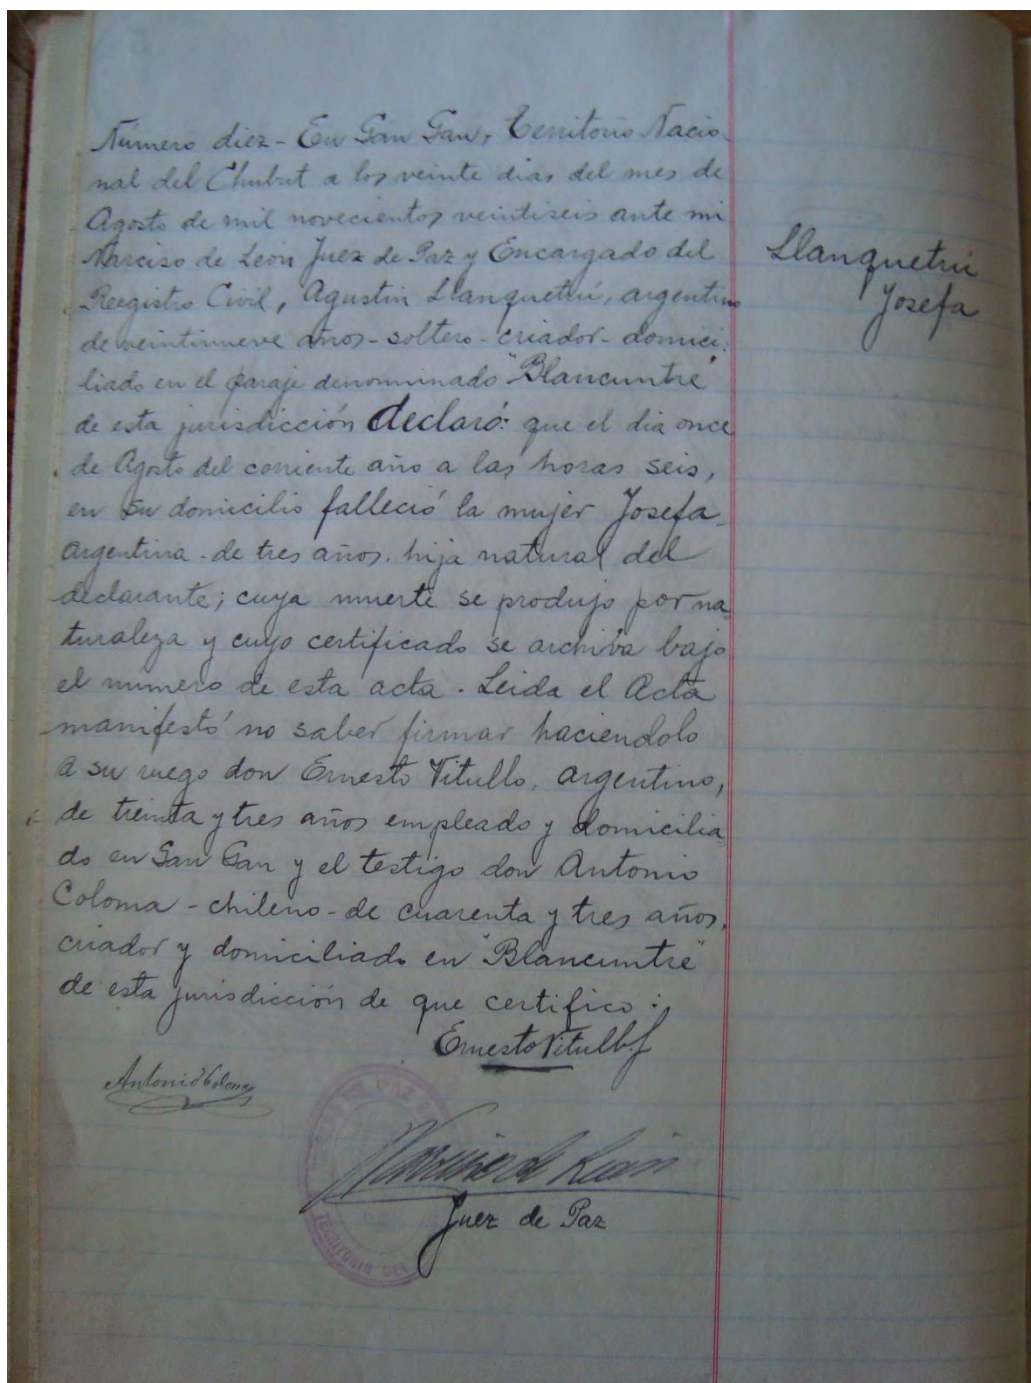 Número diez - En Gan Gan, Territorio Nacio-
nal del Chubut a los veinte dias del mes de
Agosto de mil novecientos veintiseis ante mi
Narciso de León Juez de Paz y Encargado del
Registro Civil, Agustin Llanquetrú, argentino
de veintinueve años - soltero - criador - domici-
liado en el paraje denominado "Blancuntre"
de esta jurisdicción declaró: que el dia once
de Agosto del corriente año a las horas seis,
en su domicilio falleció la mujer Josefa -
argentina - de tres años. hija natural del
declarante; cuya muerte se produjo por na-
turaleza y cuyo certificado se archiva bajo
el numero de esta acta. Leida el Acta
manifestó no saber firmar haciendolo
a su ruego don Ernesto Vitullo, argentino,
de treinta y tres años empleado y domicilia-
do en Gan Gan y el testigo don Antonio
Coloma - chileno - de cuarenta y tres años,
criador y domiciliado en "Blancuntre"
de esta jurisdicción de que certifico:
Llanquetrú
Josefa
Ernesto Vitullo
Antonio Coloma
Narciso de León
Juez de Paz
PAZ
TERRITORIO DEL